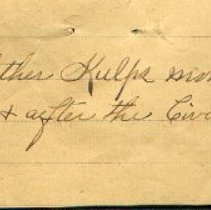 ther Kulps mo
& after the Civ